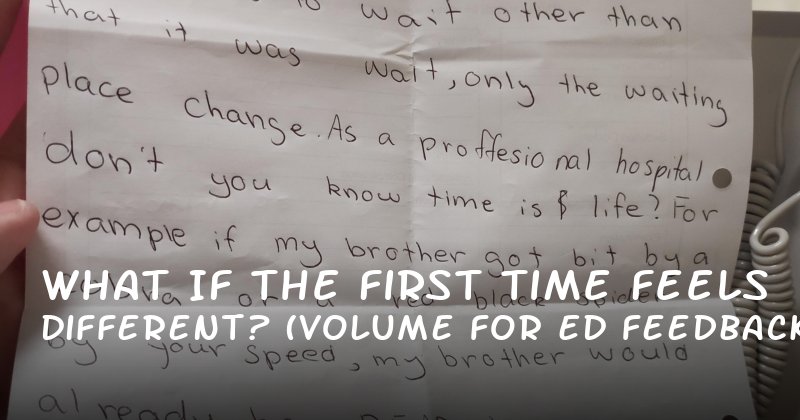 wait other than
that it was wait, only the waiting
place change. As a proffesional hospital
don't you know time is $ life? For
example if my brother got bit by a
or a red black spider
WHAT IF THE FIRST TIME FEELS
DIFFERENT? (VOLUME FOR ED FEEDBACK
by your speed, my brother would
already